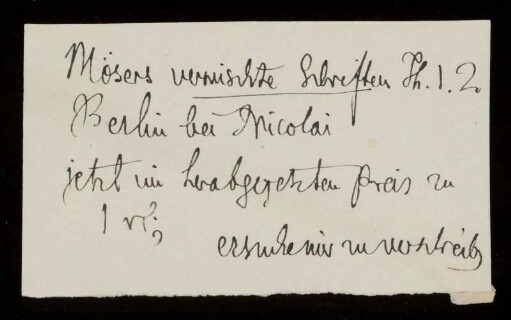 Mösers vermischte Schriften Th. 1. 2.
Berlin bei Nicolai
jetzt im herabgesetzten Preis zu
1 rℓ;
ersuche mir zu verschreib